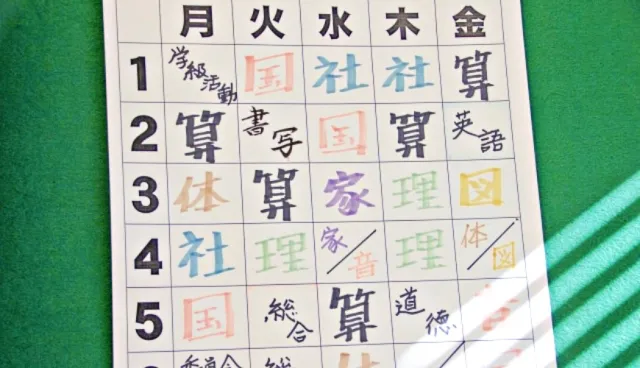 月 火 水 木 金
1 学級活動 国 社 社 算
2 算 書写 国 算 英語
3 体 算 家 理 図
4 社 理 家/音 理 体/図
5 国 総合 算 道徳 音